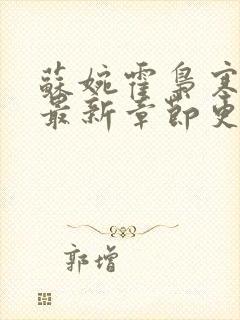 蘇婉霍梟寒
最新章節更
郭增